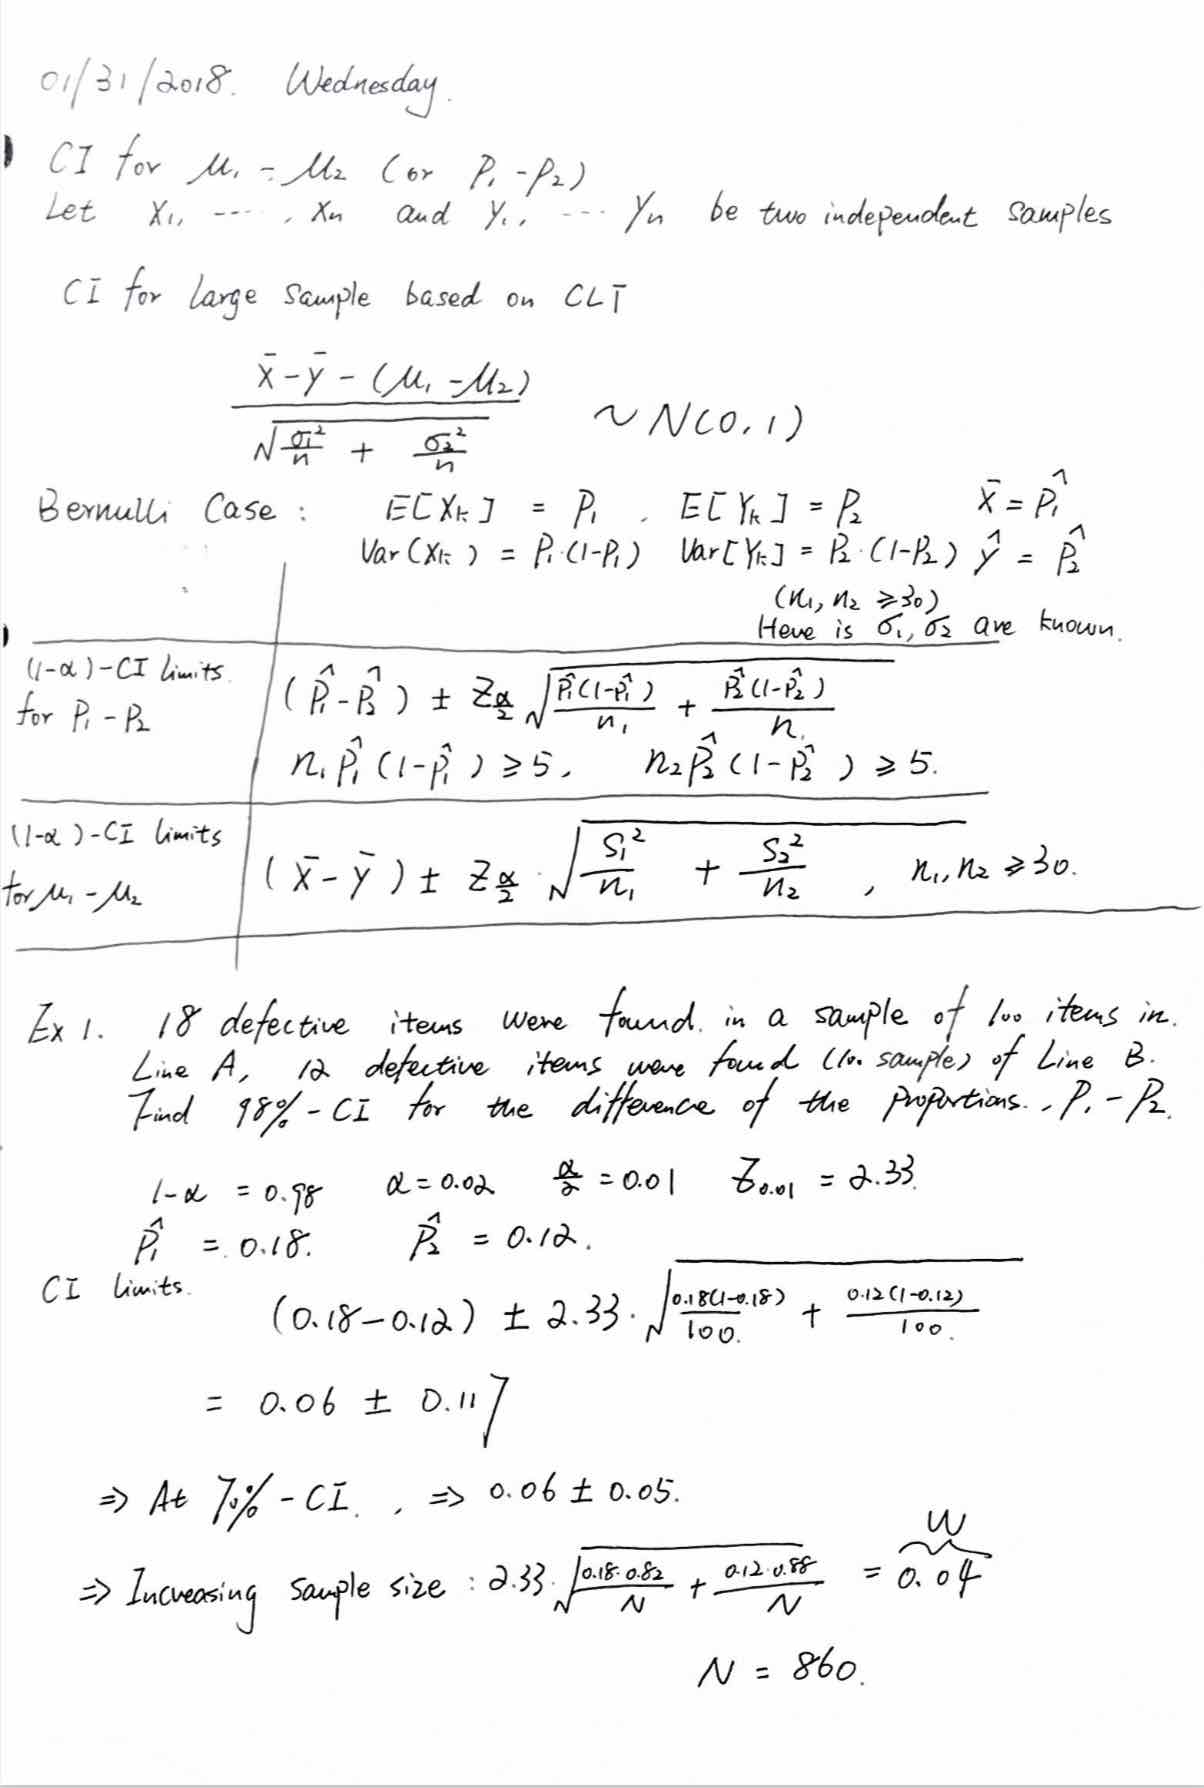 01/31/2018. Wednesday.
CI for μ₁ - μ₂ (or P₁ - P₂)
Let X₁, ----, Xn and Y₁, --- Yn be two independent samples
CI for large sample based on CLT
(X̄ - Ȳ - (μ₁ - μ₂)) / √(σ₁²/n + σ₂²/n) ~ N(0,1)
Bernulli Case : E[Xk] = P₁ . E[Yk] = P₂ X̄ = P̂₁
Var(Xk) = P₁·(1-P₁) Var[Yk] = P₂·(1-P₂) Ŷ = P̂₂
(n₁, n₂ ≥ 30)
Here is σ₁, σ₂ are known.
(1-α)-CI limits. for P₁ - P₂
(P̂₁ - P̂₂) ± Zα/2 √(P̂₁(1-P̂₁)/n₁ + P̂₂(1-P̂₂)/n.)
n₁P̂₁(1-P̂₁) ≥ 5, n₂P̂₂(1-P̂₂) ≥ 5.
(1-α)-CI limits for μ₁ - μ₂
(X̄ - Ȳ) ± Zα/2 · √(S₁²/n₁ + S₂²/n₂) , n₁, n₂ ≥ 30.
Ex 1. 18 defective items were found. in a sample of 100 items in.
Line A, 12 defective items were found (100. sample) of Line B.
Find 98% - CI for the difference of the proportions., P₁ - P₂.
1-α = 0.98 α = 0.02 α/2 = 0.01 Z0.01 = 2.33.
P̂₁ = 0.18. P̂₂ = 0.12.
CI limits.
(0.18-0.12) ± 2.33 · √(0.18(1-0.18)/100. + 0.12(1-0.12)/100.)
= 0.06 ± 0.117
⇒ At 70% - CI. , ⇒ 0.06 ± 0.05.
W
⇒ Increasing sample size : 2.33 · √(0.18·0.82/N + 0.12·0.88/N) = 0.04
N = 860.